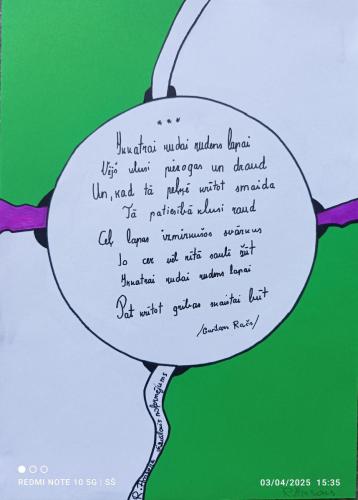 ***
Ikkatrai rudai rudens lapai
Vējš klusi pieogas un draud
Un, kad tā peļķē krītot smaida
Tā patiesībā klusi raud
Ceļ lapas izmirkušos svārkus
Jo cer vēl rītā sauli šūt
Ikkatrai rudai rudens lapai
Pat krītot gribas skaistai būt
/Guntars Račs/
REDMI NOTE 10 5G | SŠ
03/04/2025 15:35